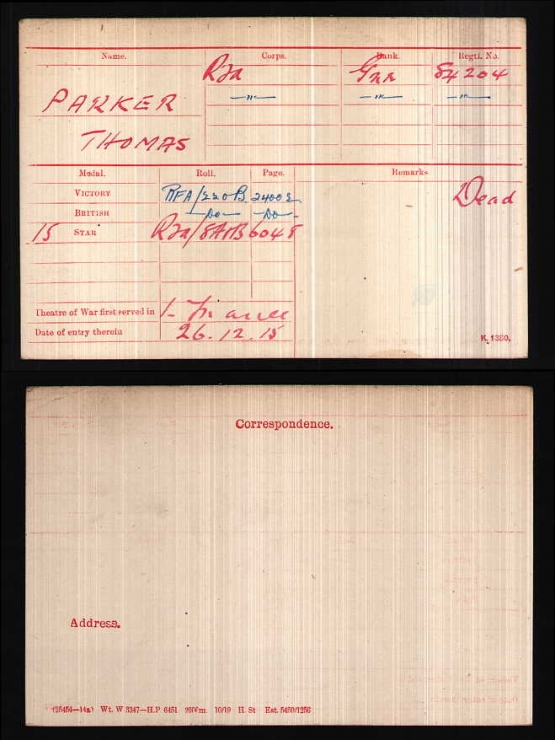 Name. Corps. Rank. Regtl. No.
PARKER RFA Gnr 84204
THOMAS —"— —"— —"—
Medal. Roll. Page. Remarks
VICTORY RFA/220B 24002 Dead
BRITISH —do— —do—
15 STAR RFA/8A 6048
Theatre of War first served in 1- France
Date of entry therein 26.12.15
K. 1380.
Correspondence.
Address.
Wt. W 3347—H.P. 6451. 10/19 H. St Est. 5450/1256